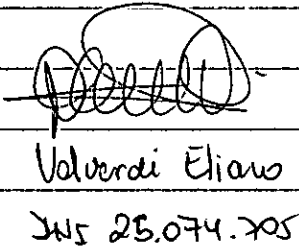 Valverdi Eliano
25.074.705